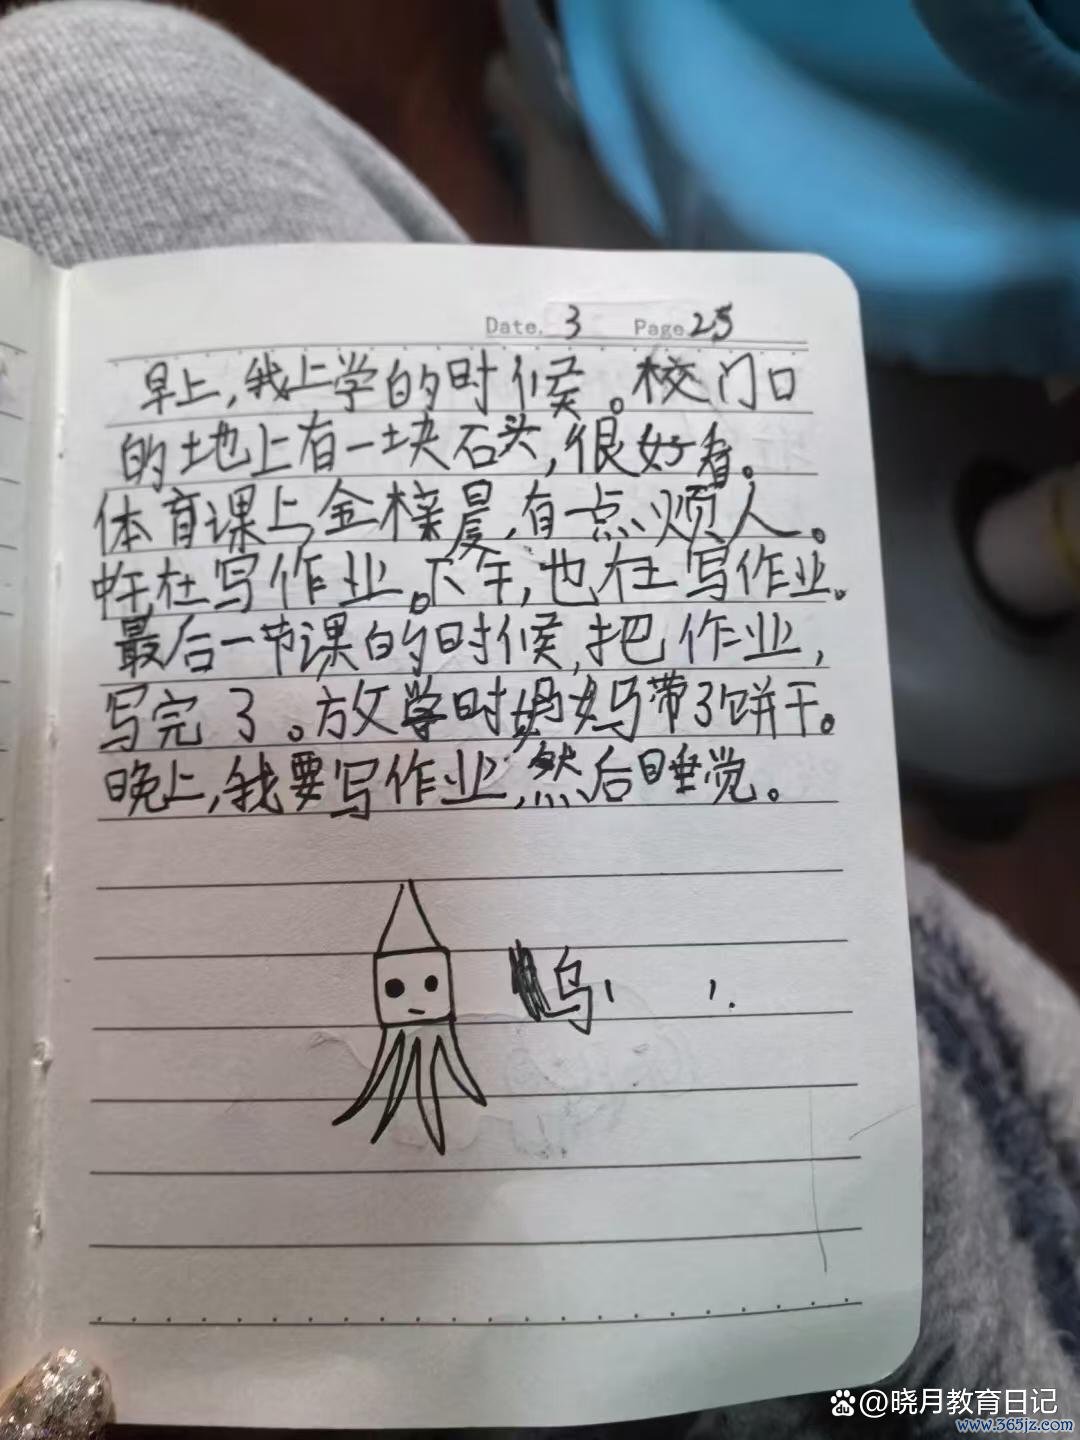 Date. 3 Page 25
早上,我上学的时候。校门口
的土地上有一块石头,很好看。
体育课上金梓晨,有一点烦人。
中午在写作业。下午,也在写作业。
最后一节课的时候,把作业,
写完了。放学时妈妈带了饼干。
晚上,我要写作业,然后睡觉。
乌
@晓月教育日记
www.365jz.com